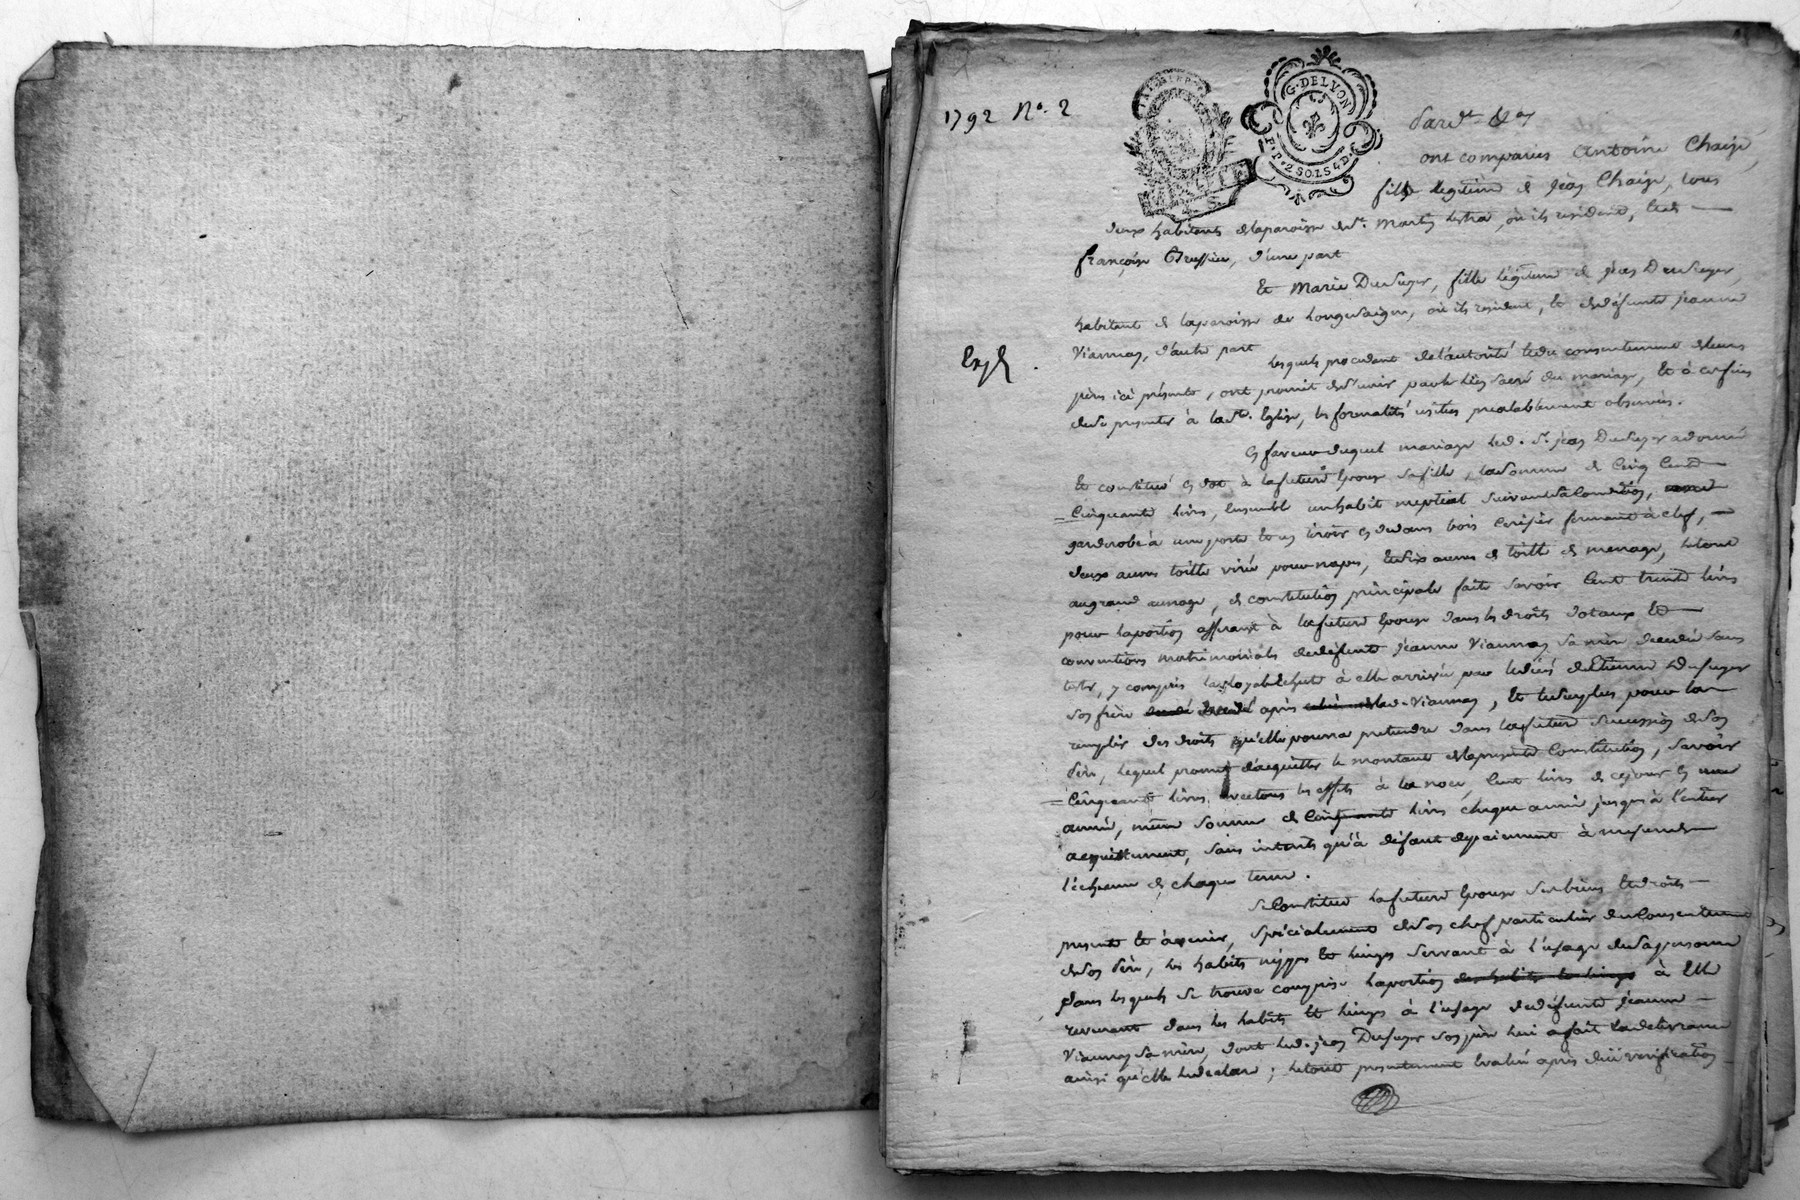 1792 N°. 2
G. DE LYON
P. P. 2 SOLS 4 D.
Pardt &a
ont comparus Antoine Chaize,
fils légitime de jean Chaize, tous
deux habitants de la paroisse de st. Martin lestra, où ils resident, et de
françoise, d'une part
Et Marie Dusuzer, fille légitime de jean Dusuzer,
habitant de la paroisse de Longesaigne, où ils resident, et de défunte jeanne
Viannay, d'autre part
Lesquels procedant de l'autorité et du consentement de leurs
pères ici présents, ont promit de s'unir par le lien sacré du mariage, et à ces fins
de se presenter à la ste. Eglise, les formalités usitées prealablement observées.
Expé
En faveur duquel mariage led. sr. jean Dusuzer a donné
et constitué en dot à la future Epouse sa fille, la somme de Cinq Cent
Cinquante livres, Ensemble un habit nuptial suivant sa Condition, une
garderobe à une porte et un tiroir en dedans bois Cerisier fermant à clef,
deux aunes toille pour napes, et dix aunes de toille de menage, le tout
au grand aunage, de constitution principale faite savoir Cent trente livres
pour la portion afferante à la future Epouse dans les droits dotaux et
conventions matrimoniales de defunte jeanne Viannay sa mère decedée sans
tester, y compris à elle arrivée par le décès de Etienne Dusuzer
son frère decedé après lad. Viannay, et le surplus pour la
remplir des droits qu'elle pourra pretendre dans la future succession de son
Père, lequel promet d'acquitter le montant de la presente Constitution, savoir
Cinquante livres avec tous les effets à la noce, Cent livres de ce jour en une
année, même somme de Cinquante livres chaque année jusqu'à l'entier
acquittement, sans interets qu'à défaut de paiement à mesure de
l'échéance de chaque terme.
Se Constitue la future Epouse ses biens et droits
presents et à venir, spécialement de son chef particulier du Consentement
de son Père, les habits nippes et linges servant à l'usage de sa personne
dans lesquels se trouve comprise la portion des habits et linges à Elle
revenant dans les habits et linges à l'usage de defunte jeanne
Viannay sa mère, dont led. jean Dusuzer son père lui a fait la delivrance
ainsi qu'elle le declare ; le tout presentement Evalué après due verification